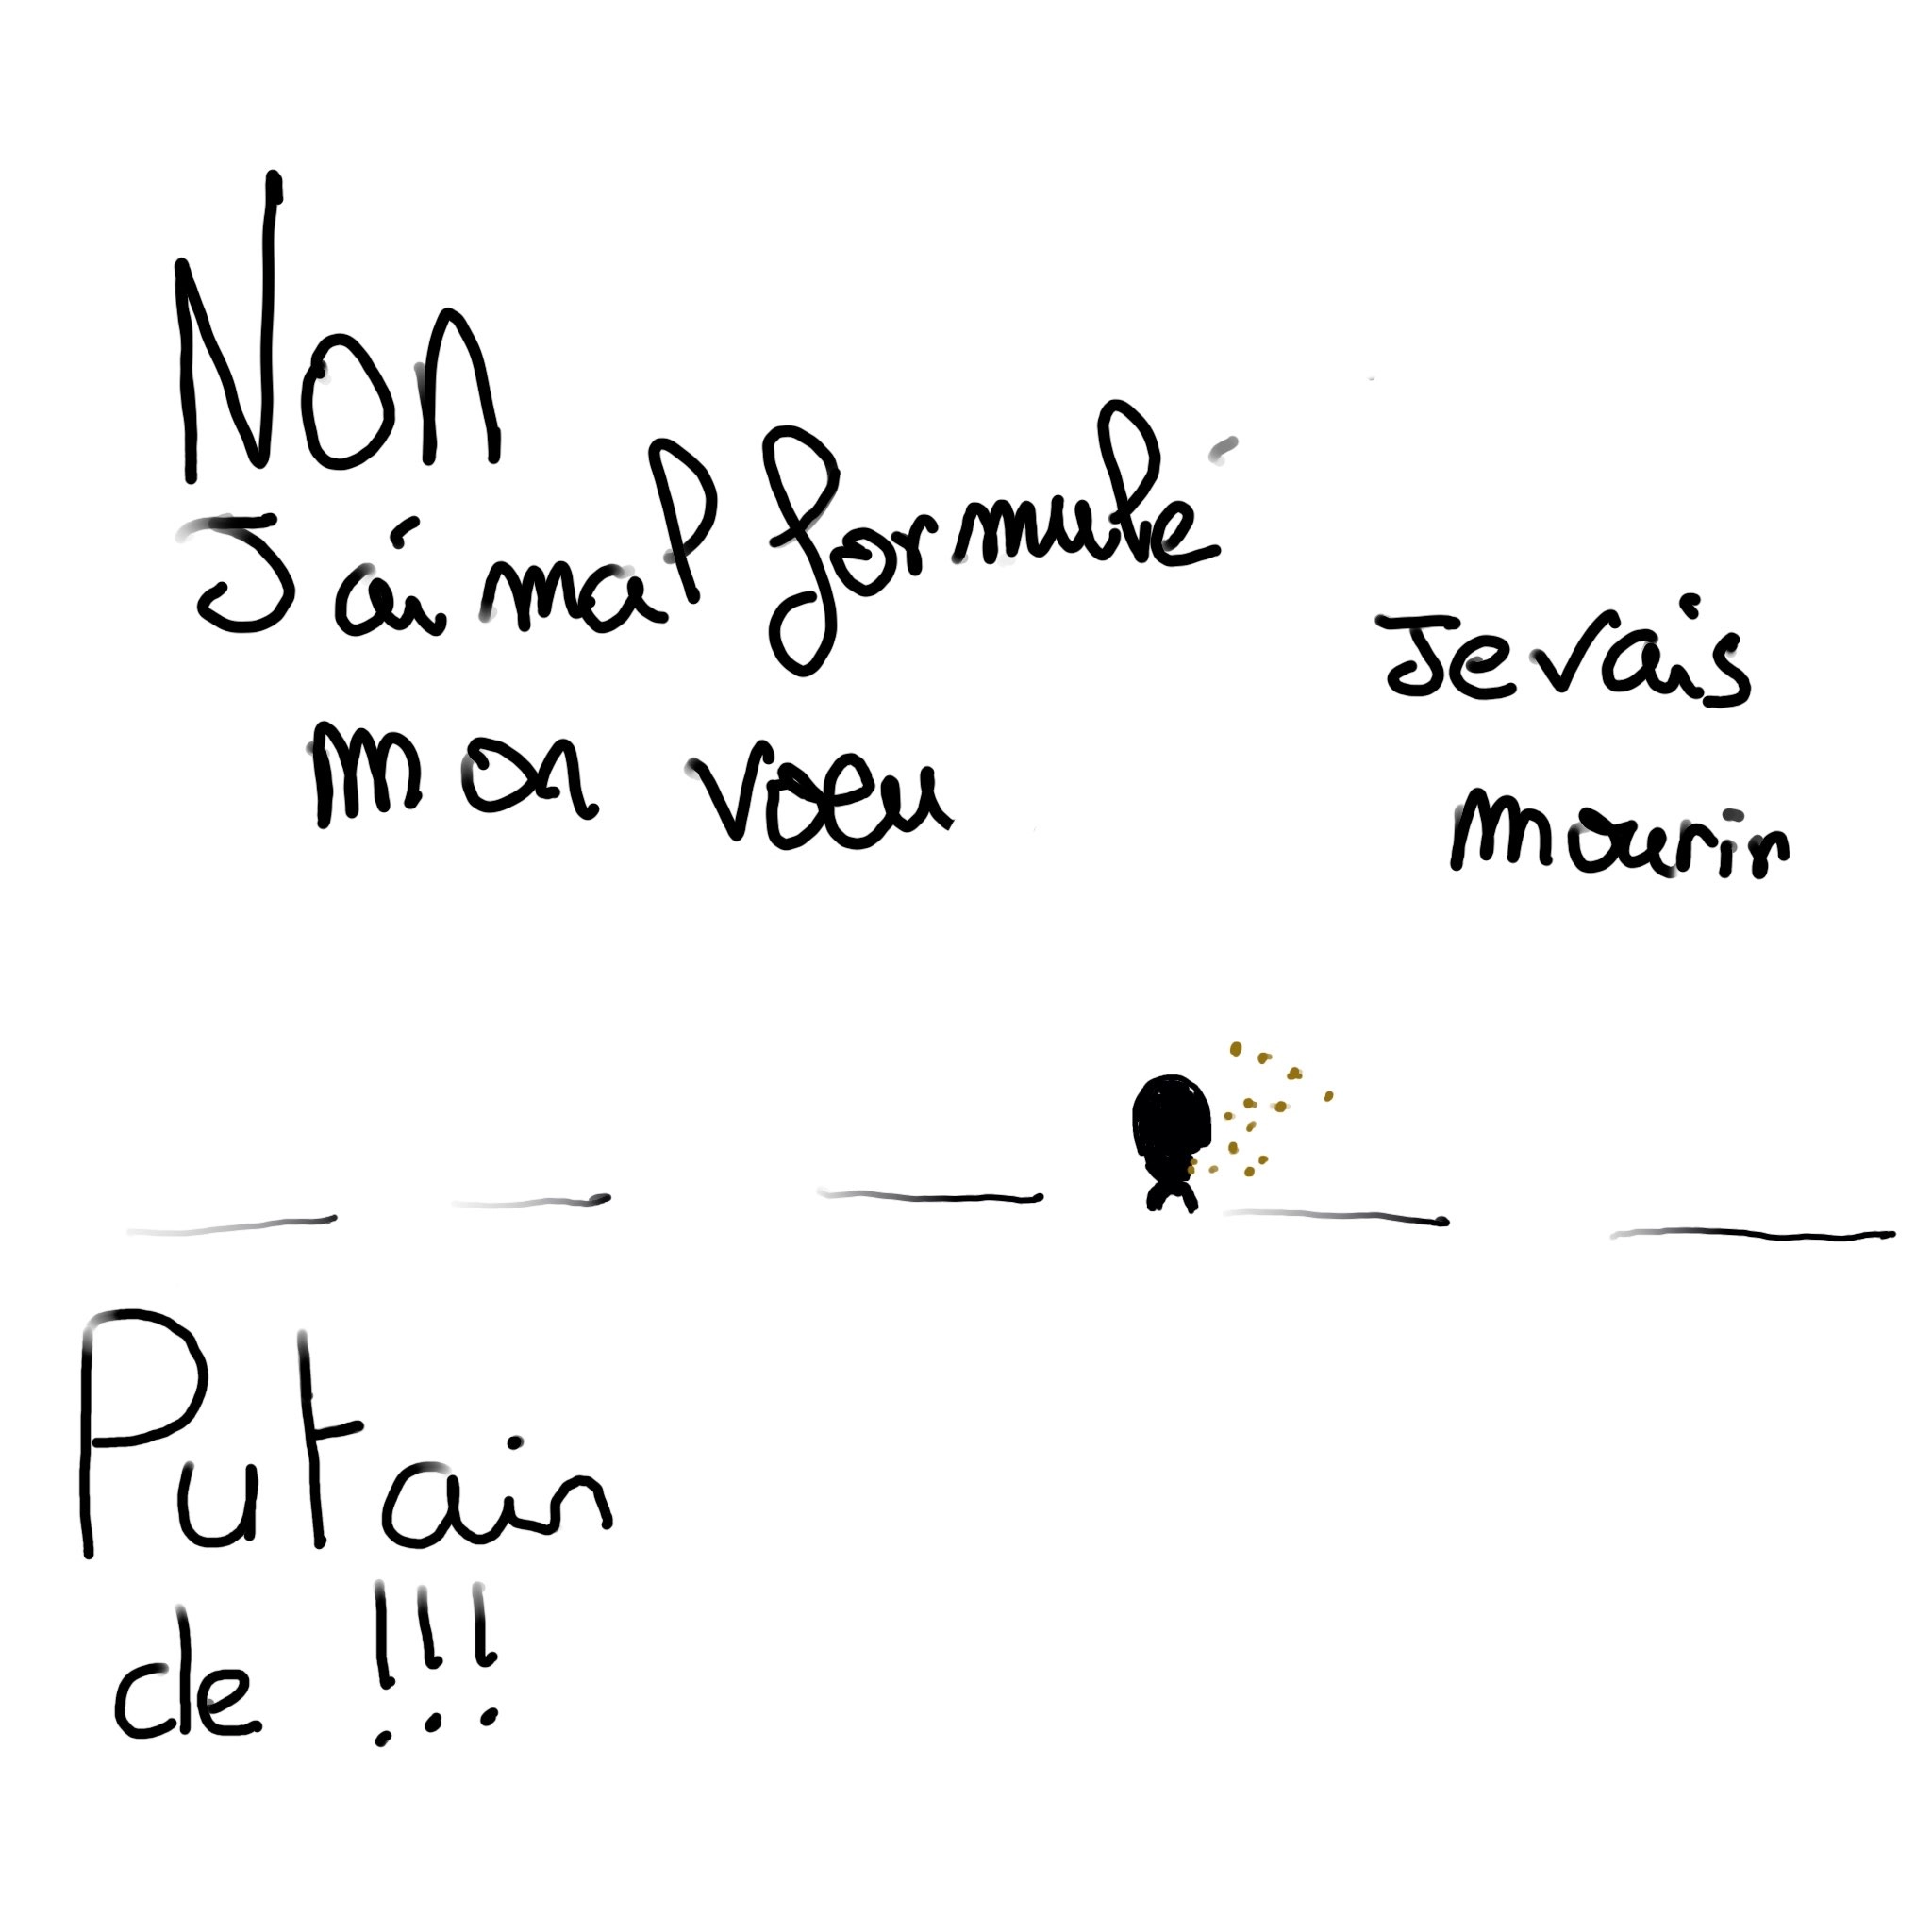 Non
J'ai mal formulé
mon voeu
Je vais
Mourir
Putain
de !!!